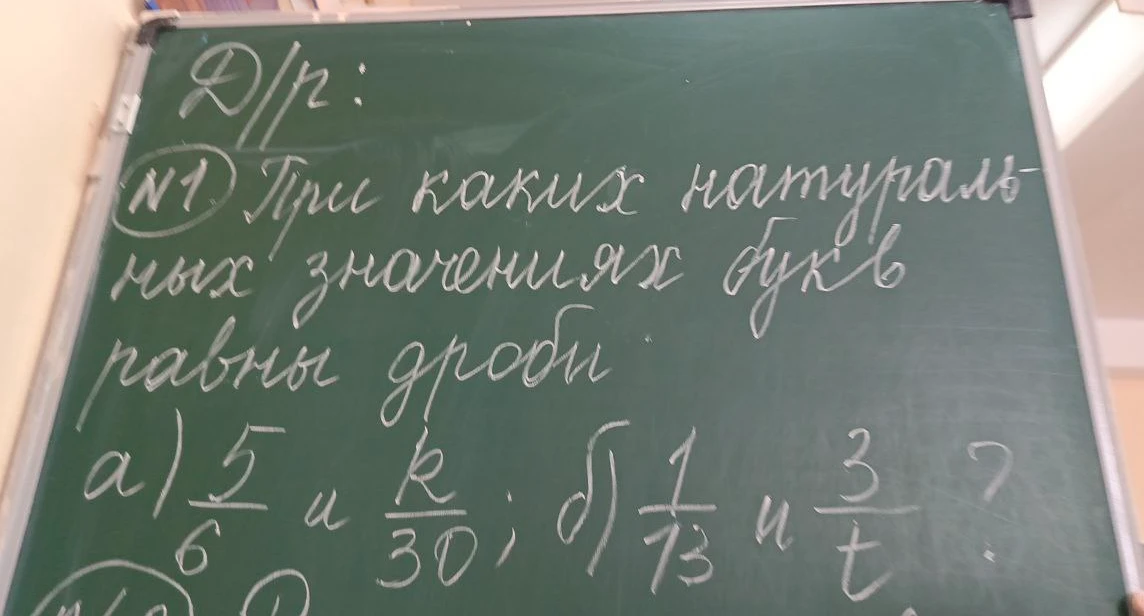 Д/р:
№1 При каких натураль-
ных значениях букв
равны дроби
а) 5/6 и k/30; б) 1/13 и 3/t ?